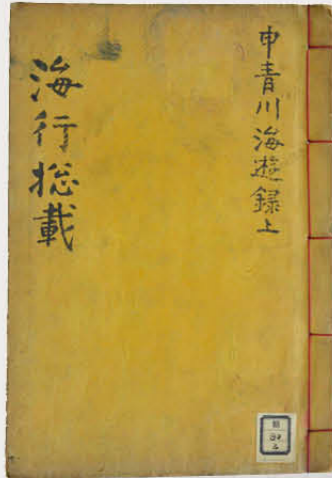 申青川海遊録上
海行捴載